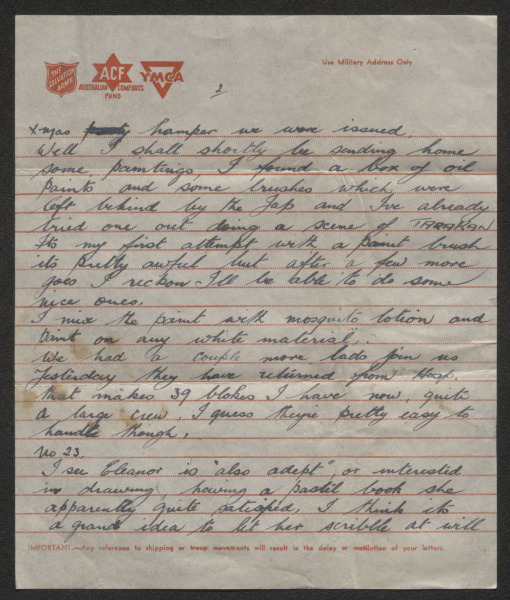 THE SALVATION ARMY
ACF
AUSTRALIAN COMFORTS FUND
YMCA
Use Military Address Only
2
X-mas party hamper we were issued.
Well I shall shortly be sending home
some paintings, I found a box of oil
Paints and some brushes which were
left behind by the Jap and I've already
tried one out doing a scene of TARAKAN
Its my first attempt with a paint brush
its pretty awful but after a few more
goes I reckon I'll be able to do some
nice ones.
I mix the paint with mosquito lotion and
Paint on any white material,.
We had a couple more lads join us
Yesterday they have returned from Hosp.
that makes 39 blokes I have now, quite
a large crew, I guess theyre pretty easy to
handle though.
No 23.
I see Eleanor is "also adept", or interested
in drawing, having a pastil book she
apparently quite satisfied, I think its
a grand idea to let her scribble at will
IMPORTANT.—Any reference to shipping or troop movements will result in the delay or mutilation of your letters.